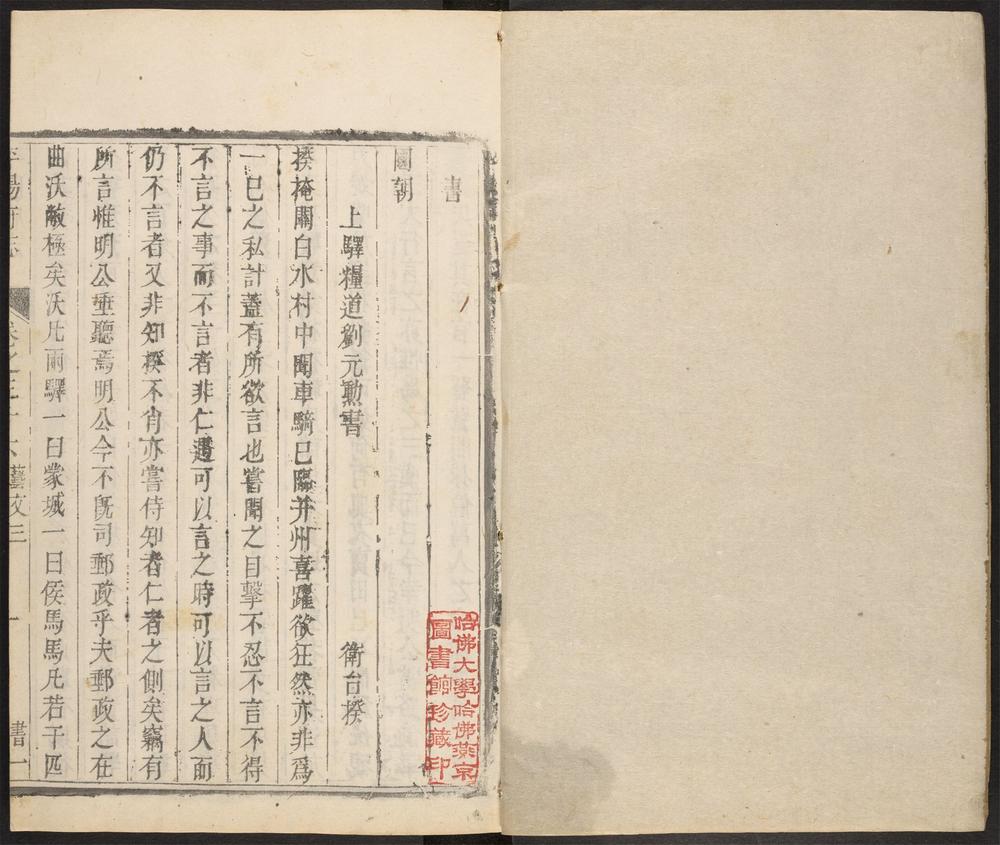 書
國朝
上驛糧道劉元勳書 衛台揆
揆掩關白水村中聞車騎已臨并州喜躍欲狂然亦非爲
一已之私計蓋有所欲言也嘗聞之目擊不忍不言不得
不言之事而不言者非仁遇可以言之時可以言之人而
仍不言者又非知揆不肖亦嘗侍知者仁者之側矣竊有
所言惟明公垂聽焉明公今不旣司郵政乎夫郵政之在
曲沃敝極矣沃凡兩驛一曰蒙城一曰侯馬馬凡若干匹
平陽府志 卷之三十六藝文三 一 書一
哈佛大學哈佛燕京
圖書館珍藏印